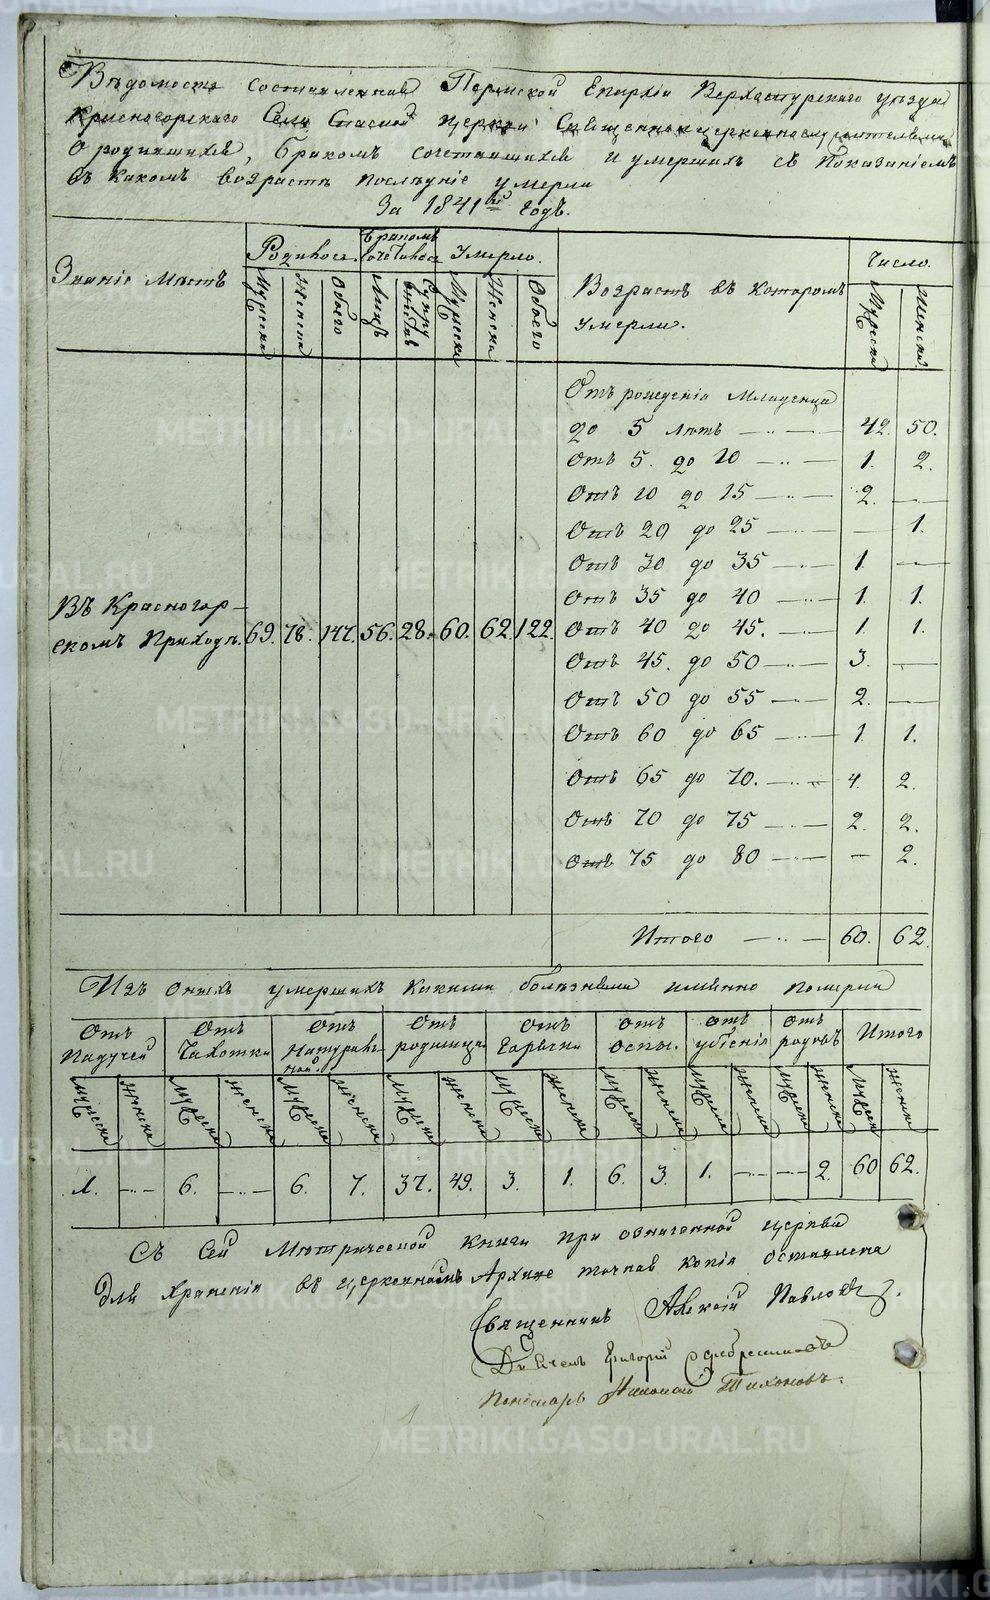 Вѣдомость составленная Пермской Епархіи Верхотурскаго уѣзда
Красногорскаго Села Спасской церкви Священноцерковнослужителями
О родившихся, бракомъ сочетавшихся и умершихъ съ показаніемъ
въ какомъ возрастѣ послѣдніе умерли
За 1841й годъ.
Званіе мѣстъ
Родилось.
Бракомъ сочеталось
Умерло.
Возрастъ въ которомъ умерли.
Число.
Мужеска Женска Обоего Лицъ Супружествъ Мужеска Женска Обоего Мужеска Женска
Отъ рожденія Младенца
до 5 лѣтъ 42. 50.
Отъ 5. до 10 1. 2.
Отъ 10 до 15 2. —
Отъ 20 до 25 — 1.
Отъ 30 до 35 1. —
Отъ 35 до 40 1. 1.
Въ Красногор-
скомъ Приходѣ. 69. 78. 147. 56. 28. 60. 62. 122.
Отъ 40 до 45. 1. 1.
Отъ 45. до 50 3. —
Отъ 50 до 55 2. —
Отъ 60 до 65 1. 1.
Отъ 65 до 70. 4. 2.
Отъ 70 до 75 2. 2.
Отъ 75 до 80 — 2.
Итого 60. 62.
Изъ оныхъ умершихъ какими болѣзнями именно померли
Отъ Падучей
Отъ Чахотки
Отъ Натуральной
Отъ родимца
Отъ Горячки
Отъ Оспы.
Отъ убіенія
Отъ родовъ
Итого
Мужеска Женска Мужеска Женска Мужеска Женска Мужеска Женска Мужеска Женска Мужеска Женска Мужеска Женска Мужеска Женска Мужеска Женска
1. — 6. — 6. 7. 37. 49. 3. 1. 6. 3. 1. — — 2. 60 62.
Съ Сей Метрической книги при означенной церкви
для храненія въ церковномъ Архиве точная копія оставлена
Священникъ Алексій Павловъ.
Діаконъ Григорій Серебренниковъ
Пономарь Николай Тихоновъ.
METRIKI.GASO-URAL.RU